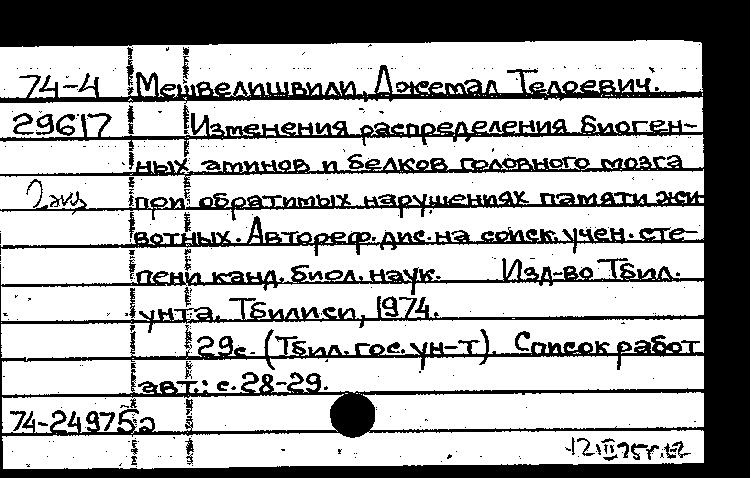 74-4 Мешвелишвили, Джемал Телоевич.
29617 Изменения распределения биоген-
ных аминов и белков головного мозга
2 экз при обратимых нарушениях памяти жи-
вотных. Автореф. дис. на соиск. учен. сте-
пени канд. биол. наук. Изд-во Тбил.
ун-та. Тбилиси, 1974.
29с. (Тбил. гос. ун-т). Список работ
авт.: с. 28-29.
74-24975а